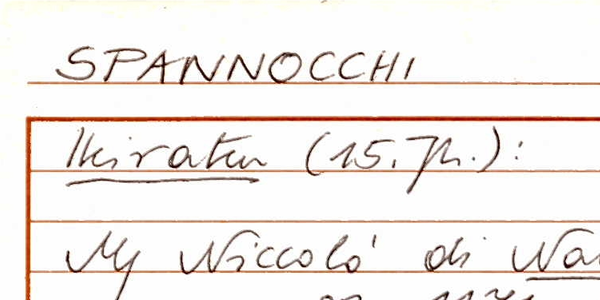 SPANNOCCHI
Heiraten (15. Jh.):
Mj Niccolò di